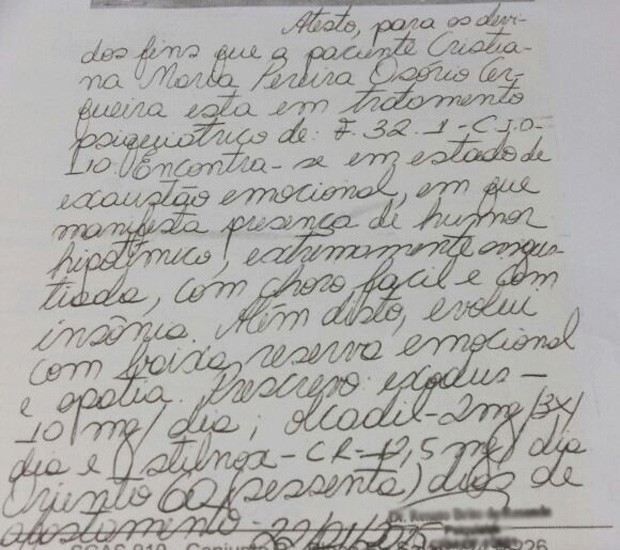 Atesto, para os devi-
dos fins que a paciente Cristia-
na Maria Pereira Osório Cer-
queira esta em tratamento
psiquiátrico de: F. 32. 1 - C.I.D-
10. Encontra-se em estado de
exaustão emocional, em que
manifesta presença de humor
hipotímico, extremamente angus-
tiada, com choro facil e com
insônia. Além disto, evolui
com baixa reserva emocional
e apatia. Prescrevo: exodus -
10 mg/dia; olcadil - 2mg/3x/
dia e stilnox - CR - 12,5 mg/dia
Oriento 60 (sessenta) dias de
afastamento.